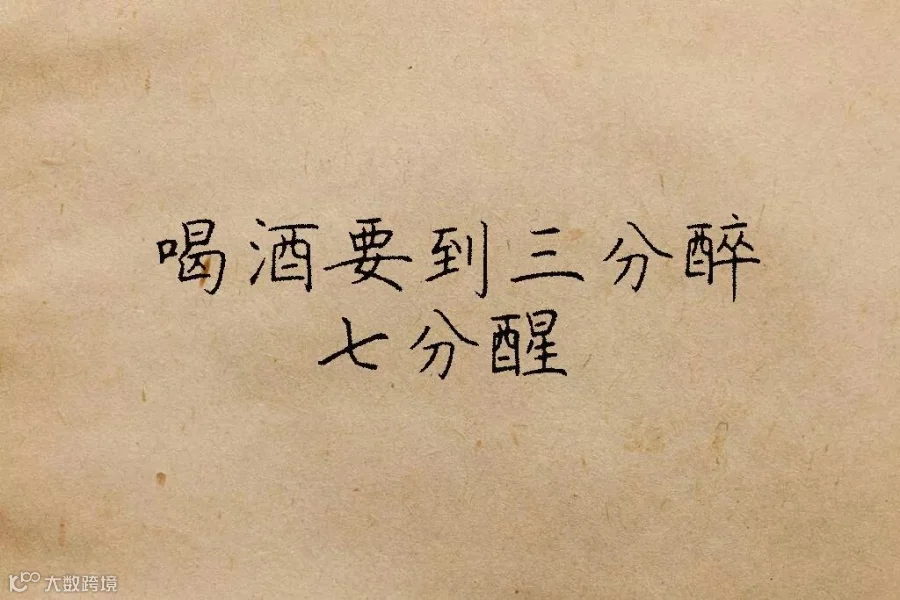 喝酒要到三分醉
七分醒
大数跨境